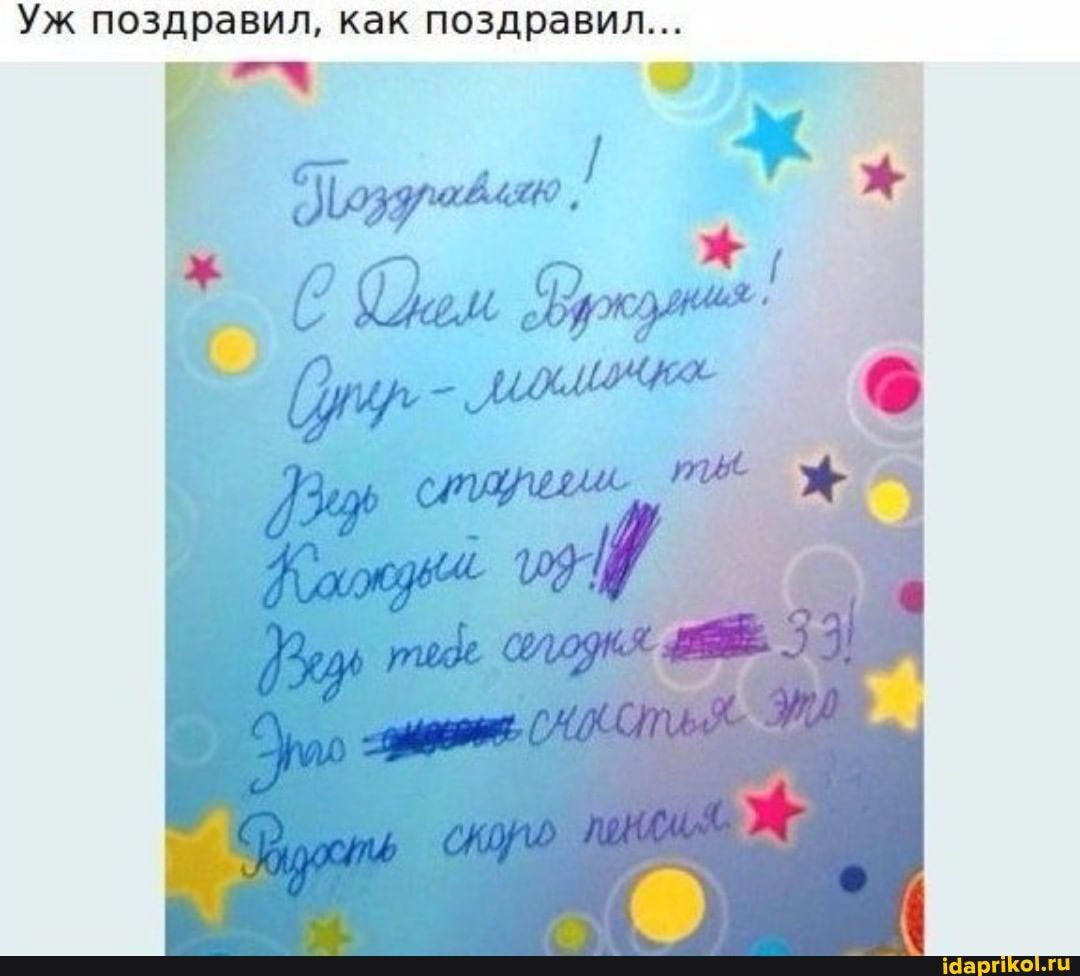 Уж поздравил, как поздравил...
Поздравляю!
С Днем Рождения!
Супер - мамочка
Ведь стареешь ты
Каждый год!
Ведь тебе сегодня 39!
Это счастья это
Радость скоро пенсия.
idaprikol.ru